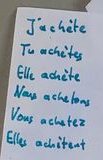 J'achète
Tu achètes
Elle achète
Nous achetons
Vous achetez
Elles achètent